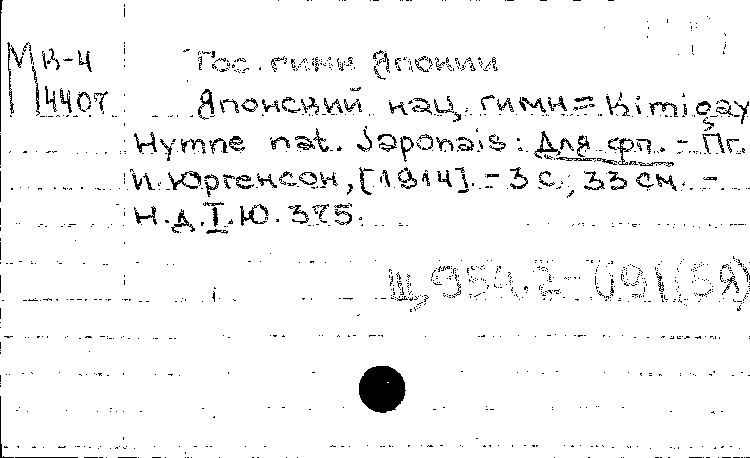 М В-4
4407
Гос. гимн Японии
Японский нац. гимн = Kimigay
Hymne nat. Japonais: Для фп. - Пг.
И. Юргенсон, [1914]. - 3 с.; 33 см. -
Н.д.I.Ю. 375.
Щ 954.2-091(5Я)